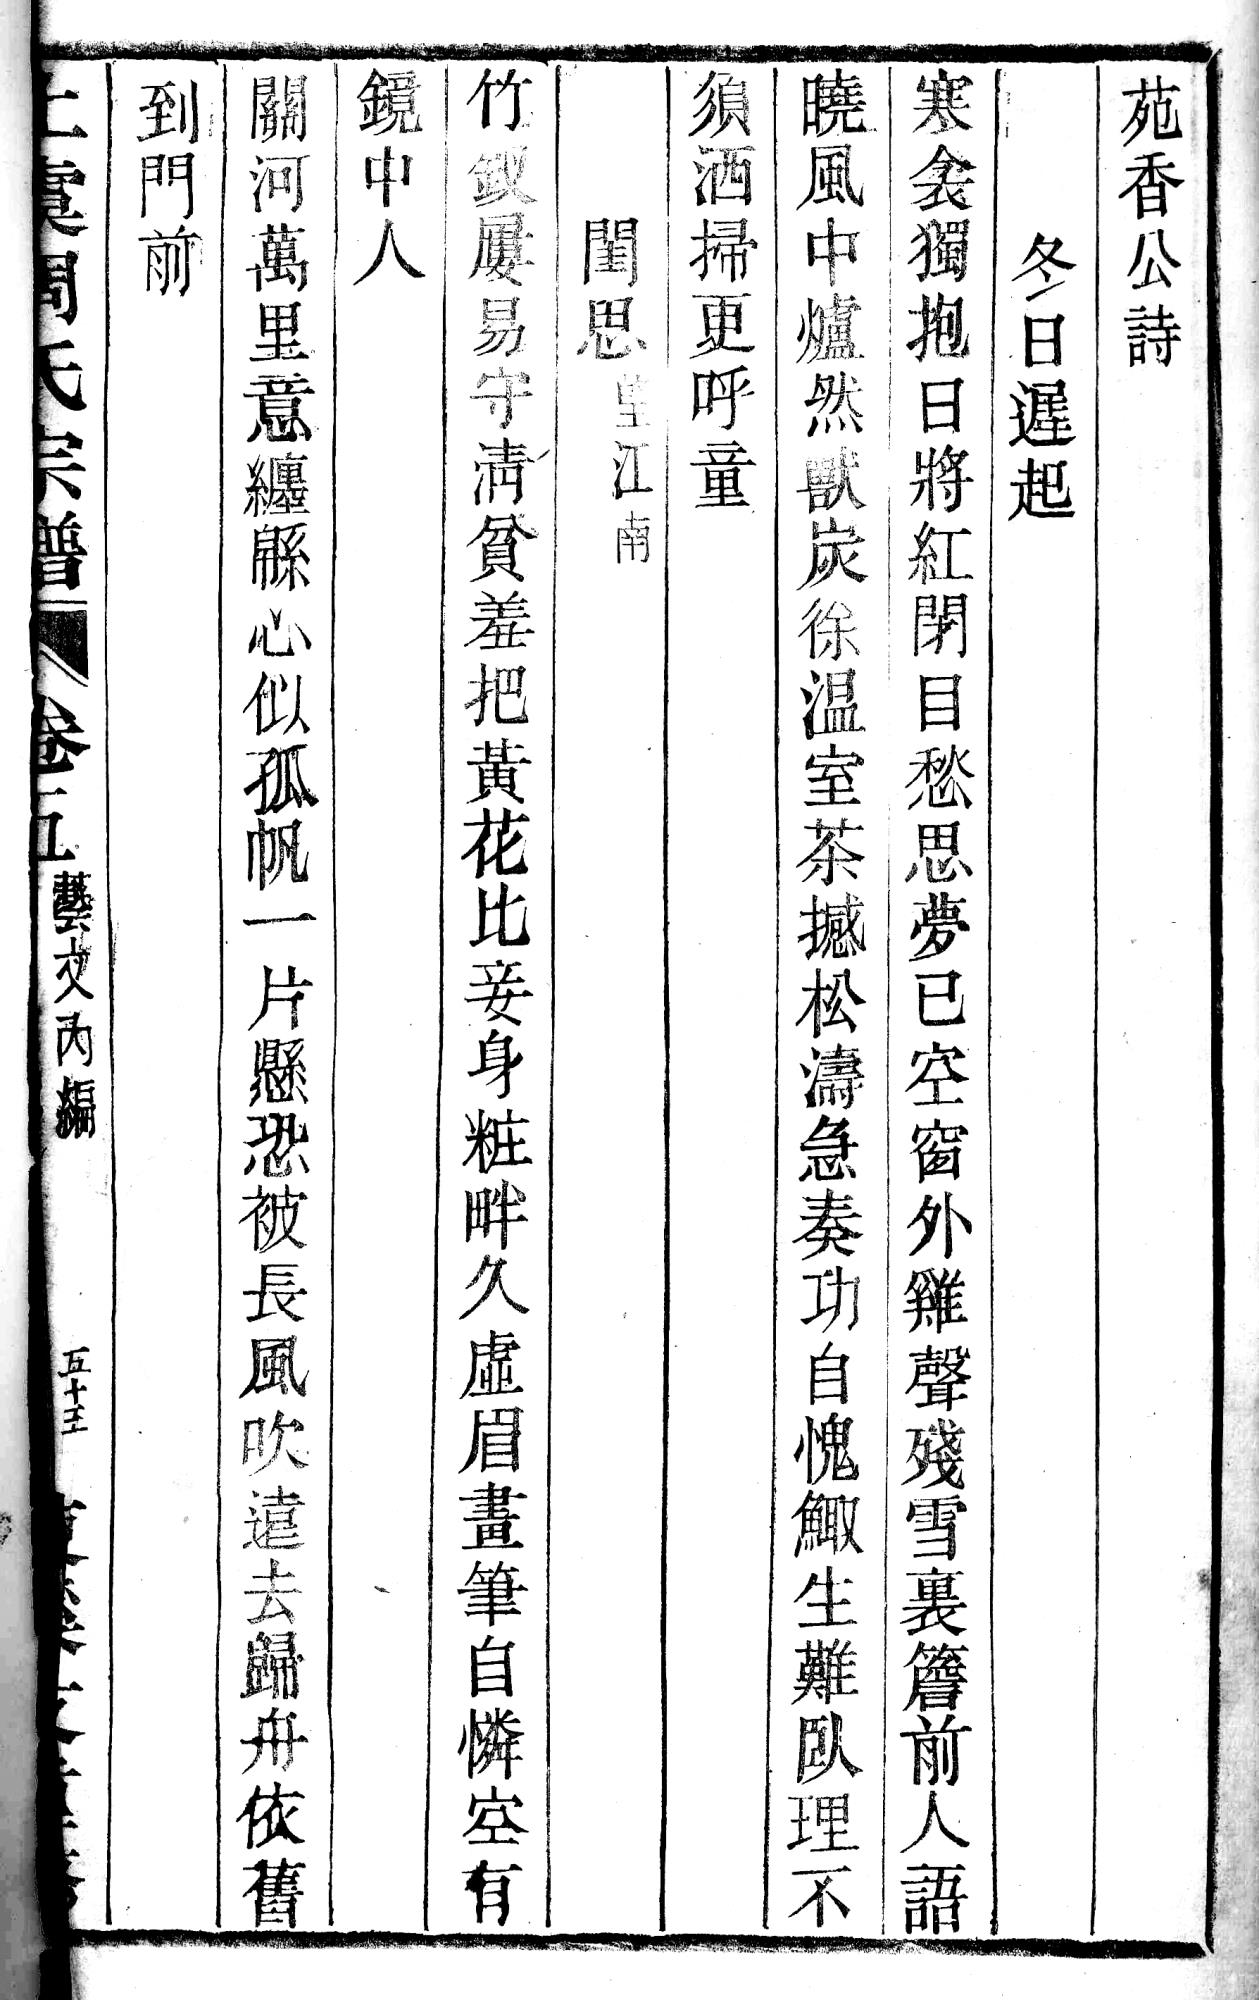 苑香公詩
冬日遲起
寒衾獨抱日將紅閉目愁思夢已空窗外雞聲殘雪裏簷前人語
曉風中爐然獸炭徐温室茶撼松濤急奏功自愧鯫生難臥理不
須洒掃更呼童
閨思望江南
竹釵屢易守清貧羞把黃花比妾身粧畔久虛眉畫筆自憐空有
鏡中人
關河萬里意纏緜心似孤帆一片懸恐被長風吹遠去歸舟依舊
到門前
上虞周氏宗譜 卷五 藝文內編 五十三